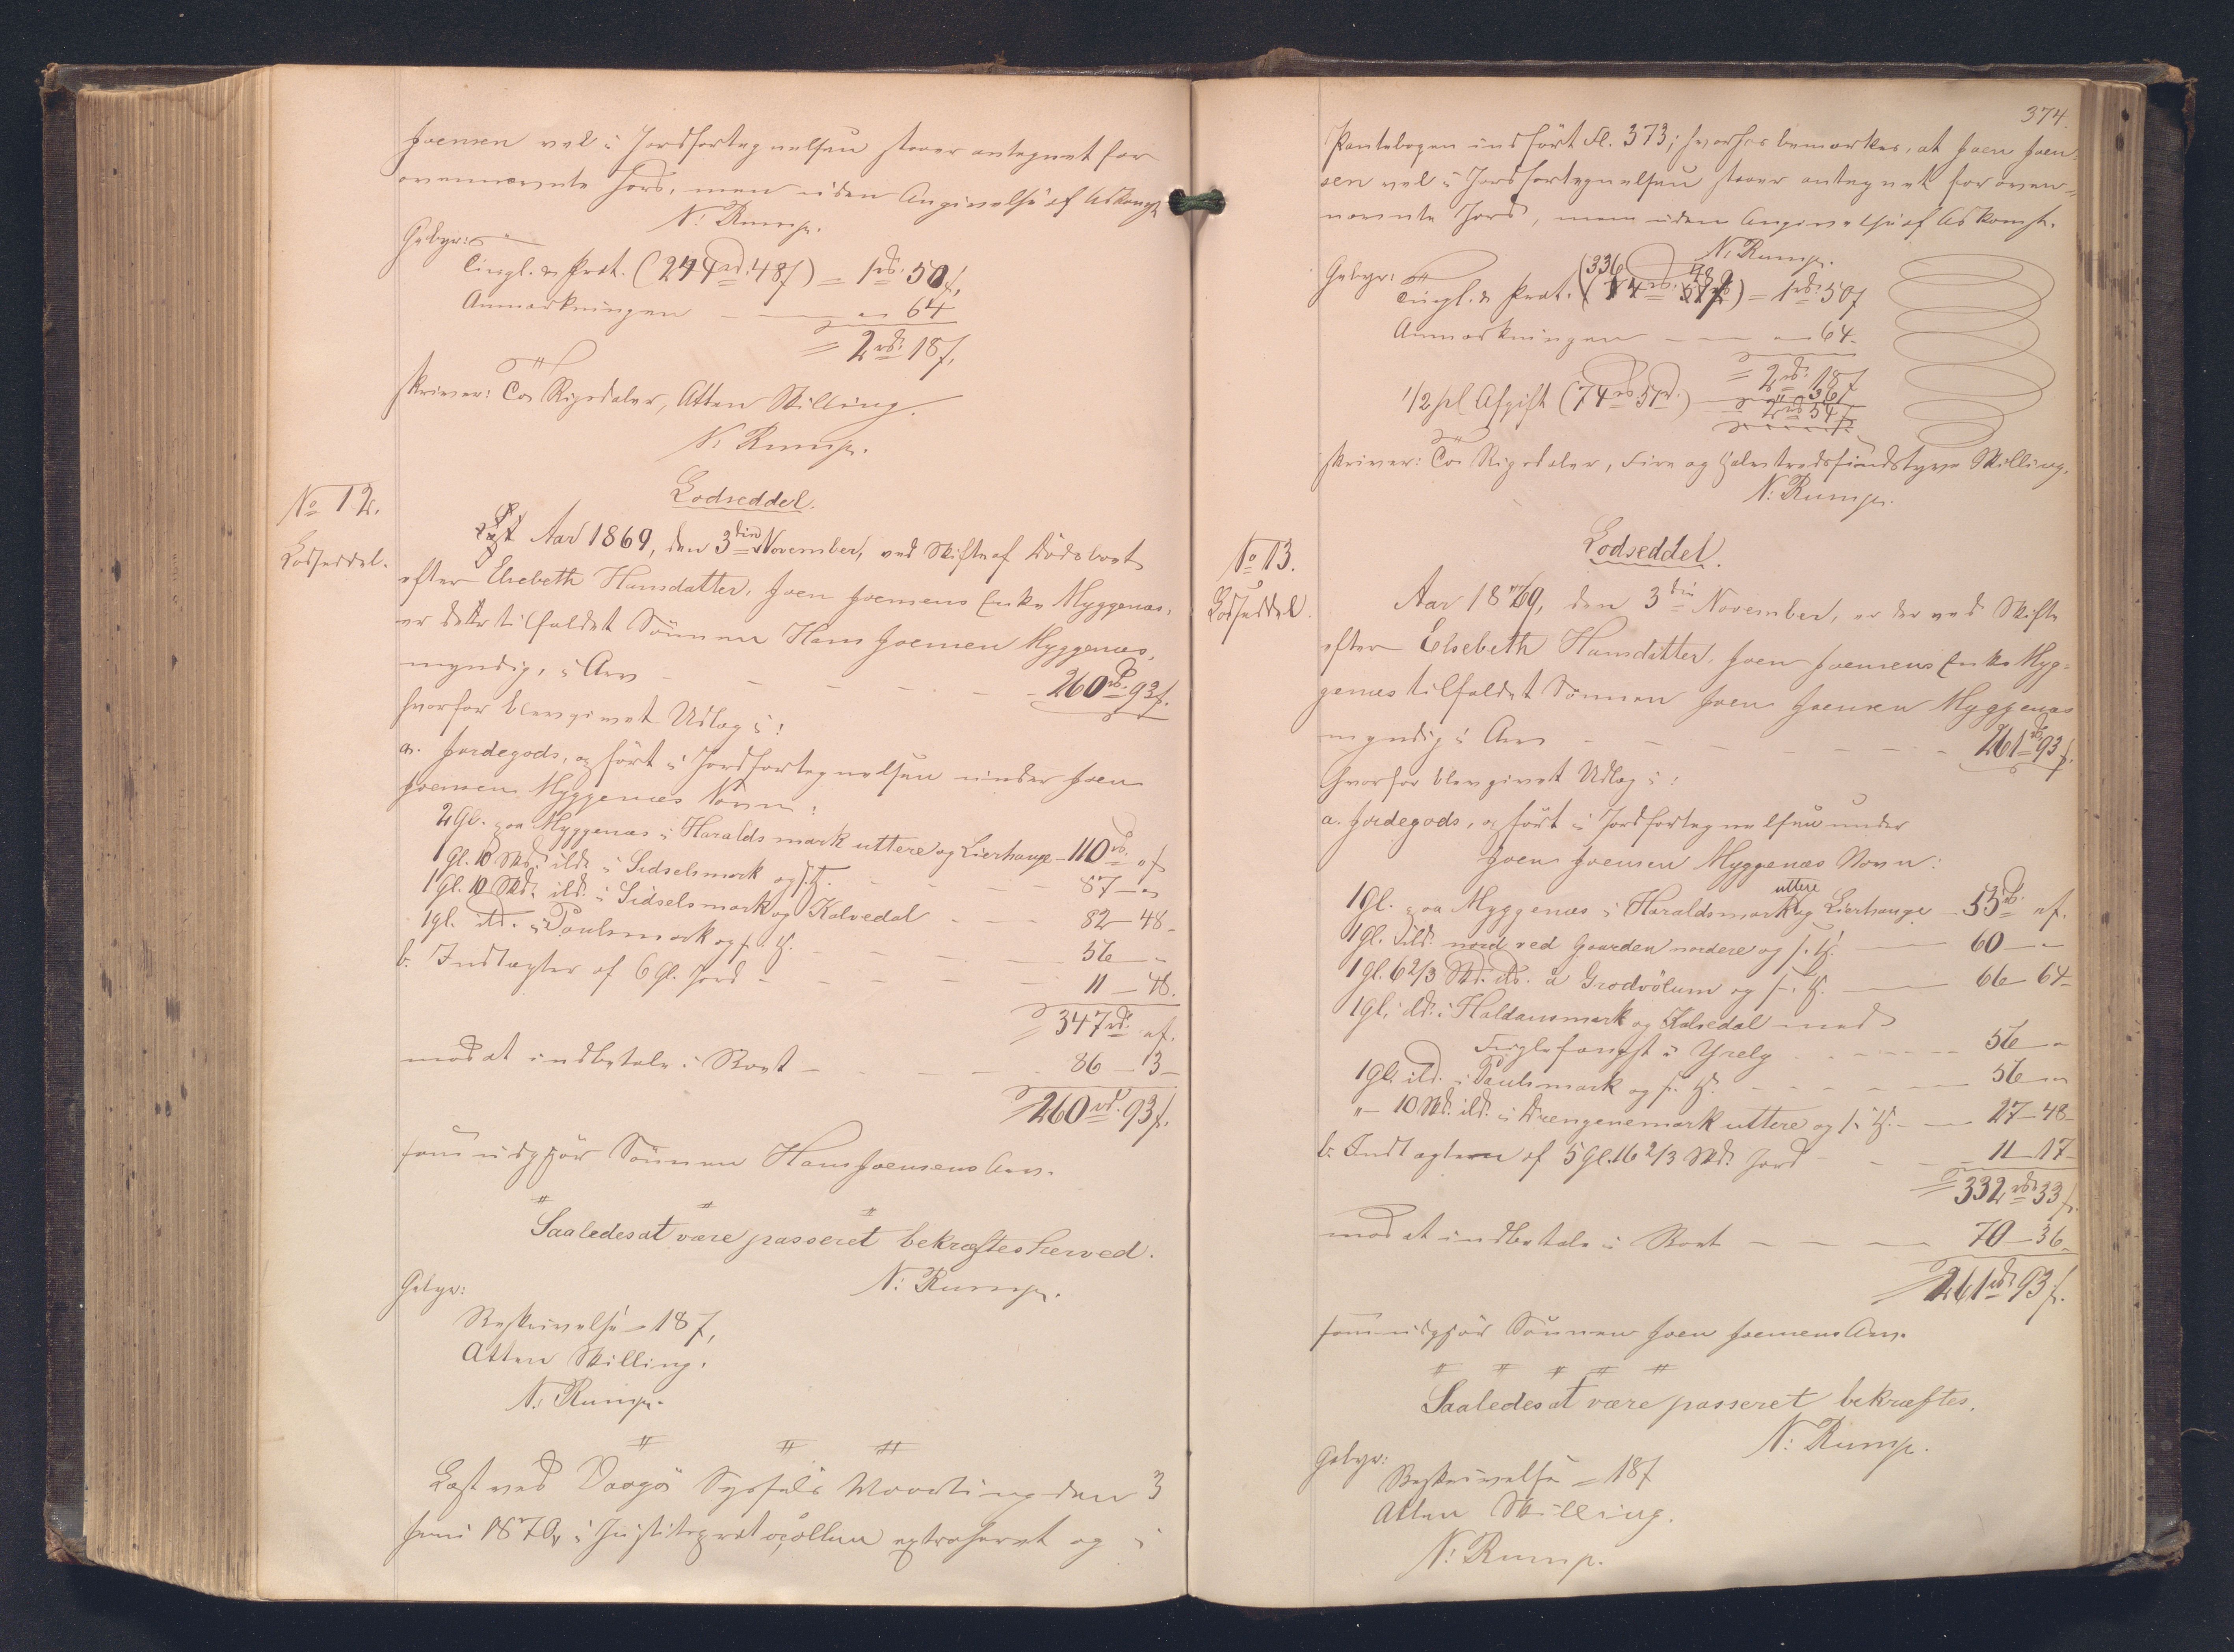 Joensen vel i Jordfortegnelsen staaer antegnet for
ovennævnte Jord, men uden Angivelse af Adkomst
N. Rump.
Gebyr:
Tingl. & Prot. (244rd. 48ſ) = 1rd. 50ſ,
Anmærkningen — " 64
= 2rd. 18ſ,
skriver: To Rigsdaler, Atten Skilling.
N. Rump.
No 12.
Lodseddel.
Lodseddel.
Aar 1869, den 3die November, ved Skifte af Dödsboet
efter Elsebeth Hansdatter, Joen Joensens Enke Myggenæs,
er dette tilfaldet Sönnen Hans Joensen Myggenæs,
myndig, i Arv - - - - - 260rd. 93ſ.
hvorfor blev givet Udlæg i:
a. Jordegods, opfört i Jordfortegnelsen under Joen
Joensens Myggenæs Navn:
2 Gl. paa Myggenæs i Haralds mark uttere og Lierhauge - 110rd. "ſ
1 Gl. 10 Skd. ibd. i Sidselsmark og s. H. - - - 87 - "
1 Gl. 10 Skd. ibd. i Sidselsmark og Kalvedal - - - 82 - 48 -
1 gl. ibd. i Paulsmark og s. H. - - - 56 - "
b. Indtægter af 6 Gl. Jord - - - - 11 - 48.
= 347rd. "ſ.
mod at indbetale i Boet - - - - 86 - 3 -
260rd. 93ſ.
som udgjör Sönnen Hans Joensens Arv.
Saaledes at være passeret bekræftes herved.
N. Rump.
Gebyr:
Beskrivelse = 18ſ,
Atten Skilling.
N. Rump.
Læst ved Vaagö Syssels Vaarting den 3
Juni 1870, i Justitsprotocollen extraheret og i
374.
Pantebogen indfört Fl. 373; hvorhos bemærkes, at Joen Joen-
sen vel i Jordfortegnelsen staaer antegnet for oven-
nævnte Jord, men uden Angivelse af Adkomst.
N. Rump.
Gebyr:
Tingl. & Prot. (336 48) = 1rd. 50ſ
Anmærkningen - - - " 64 -
= 2rd. 18ſ
1/2 pCt Afgift (74rd 51ſ) - " 36ſ
2rd 54ſ
skriver: To Rigsdaler, Fire og Halvtredsindstyve Skilling.
N. Rump.
No 13.
Lodseddel.
Lodseddel.
Aar 1869, den 3die November, er der ved Skifte
efter Elsebeth Hansdatter, Joen Joensens Enke Myg-
genæs tilfaldet Sönnen Joen Joensen Myggenæs
myndig i Arv - - - - - 261rd. 93ſ.
hvorfor blev givet Udlæg i:
a. Jordegods, opfört i Jordfortegnelsen under
Joen Joensen Myggenæs Navn:
uttere
1 Gl. paa Myggenæs i Haraldsmark og Lierhauge - 55rd. "ſ.
1 Gl. ibd. nord ved Gaarden nordere og s. H. — 60 - "
1 Gl. 6 2/3 Skd. ibd. a Grodvölum og s. H. — 66 - 64 -
1 Gl. ibd. i Haldansmark og Kalvedal med
Fuglefangst i - - - 56 - "
1 Gl. ibd. i Paulsmark og s. H. - - - 56 - "
" - 10 Skd. ibd. i Drengenemark uttere og s. H. - 27 - 48 -
b. Indtægten af 5 Gl. 16 2/3 Skd. Jord - - - 11 - 17 -
= 332rd. 33ſ.
mod at indbetale i Boet - - - - 70 - 36
261rd. 93ſ.
som udgjör Sönnen Joen Joensens Arv.
Saaledes at være passeret bekræftes.
N. Rump.
Gebyr:
Beskrivelse = 18ſ
Atten Skilling.
N. Rump.